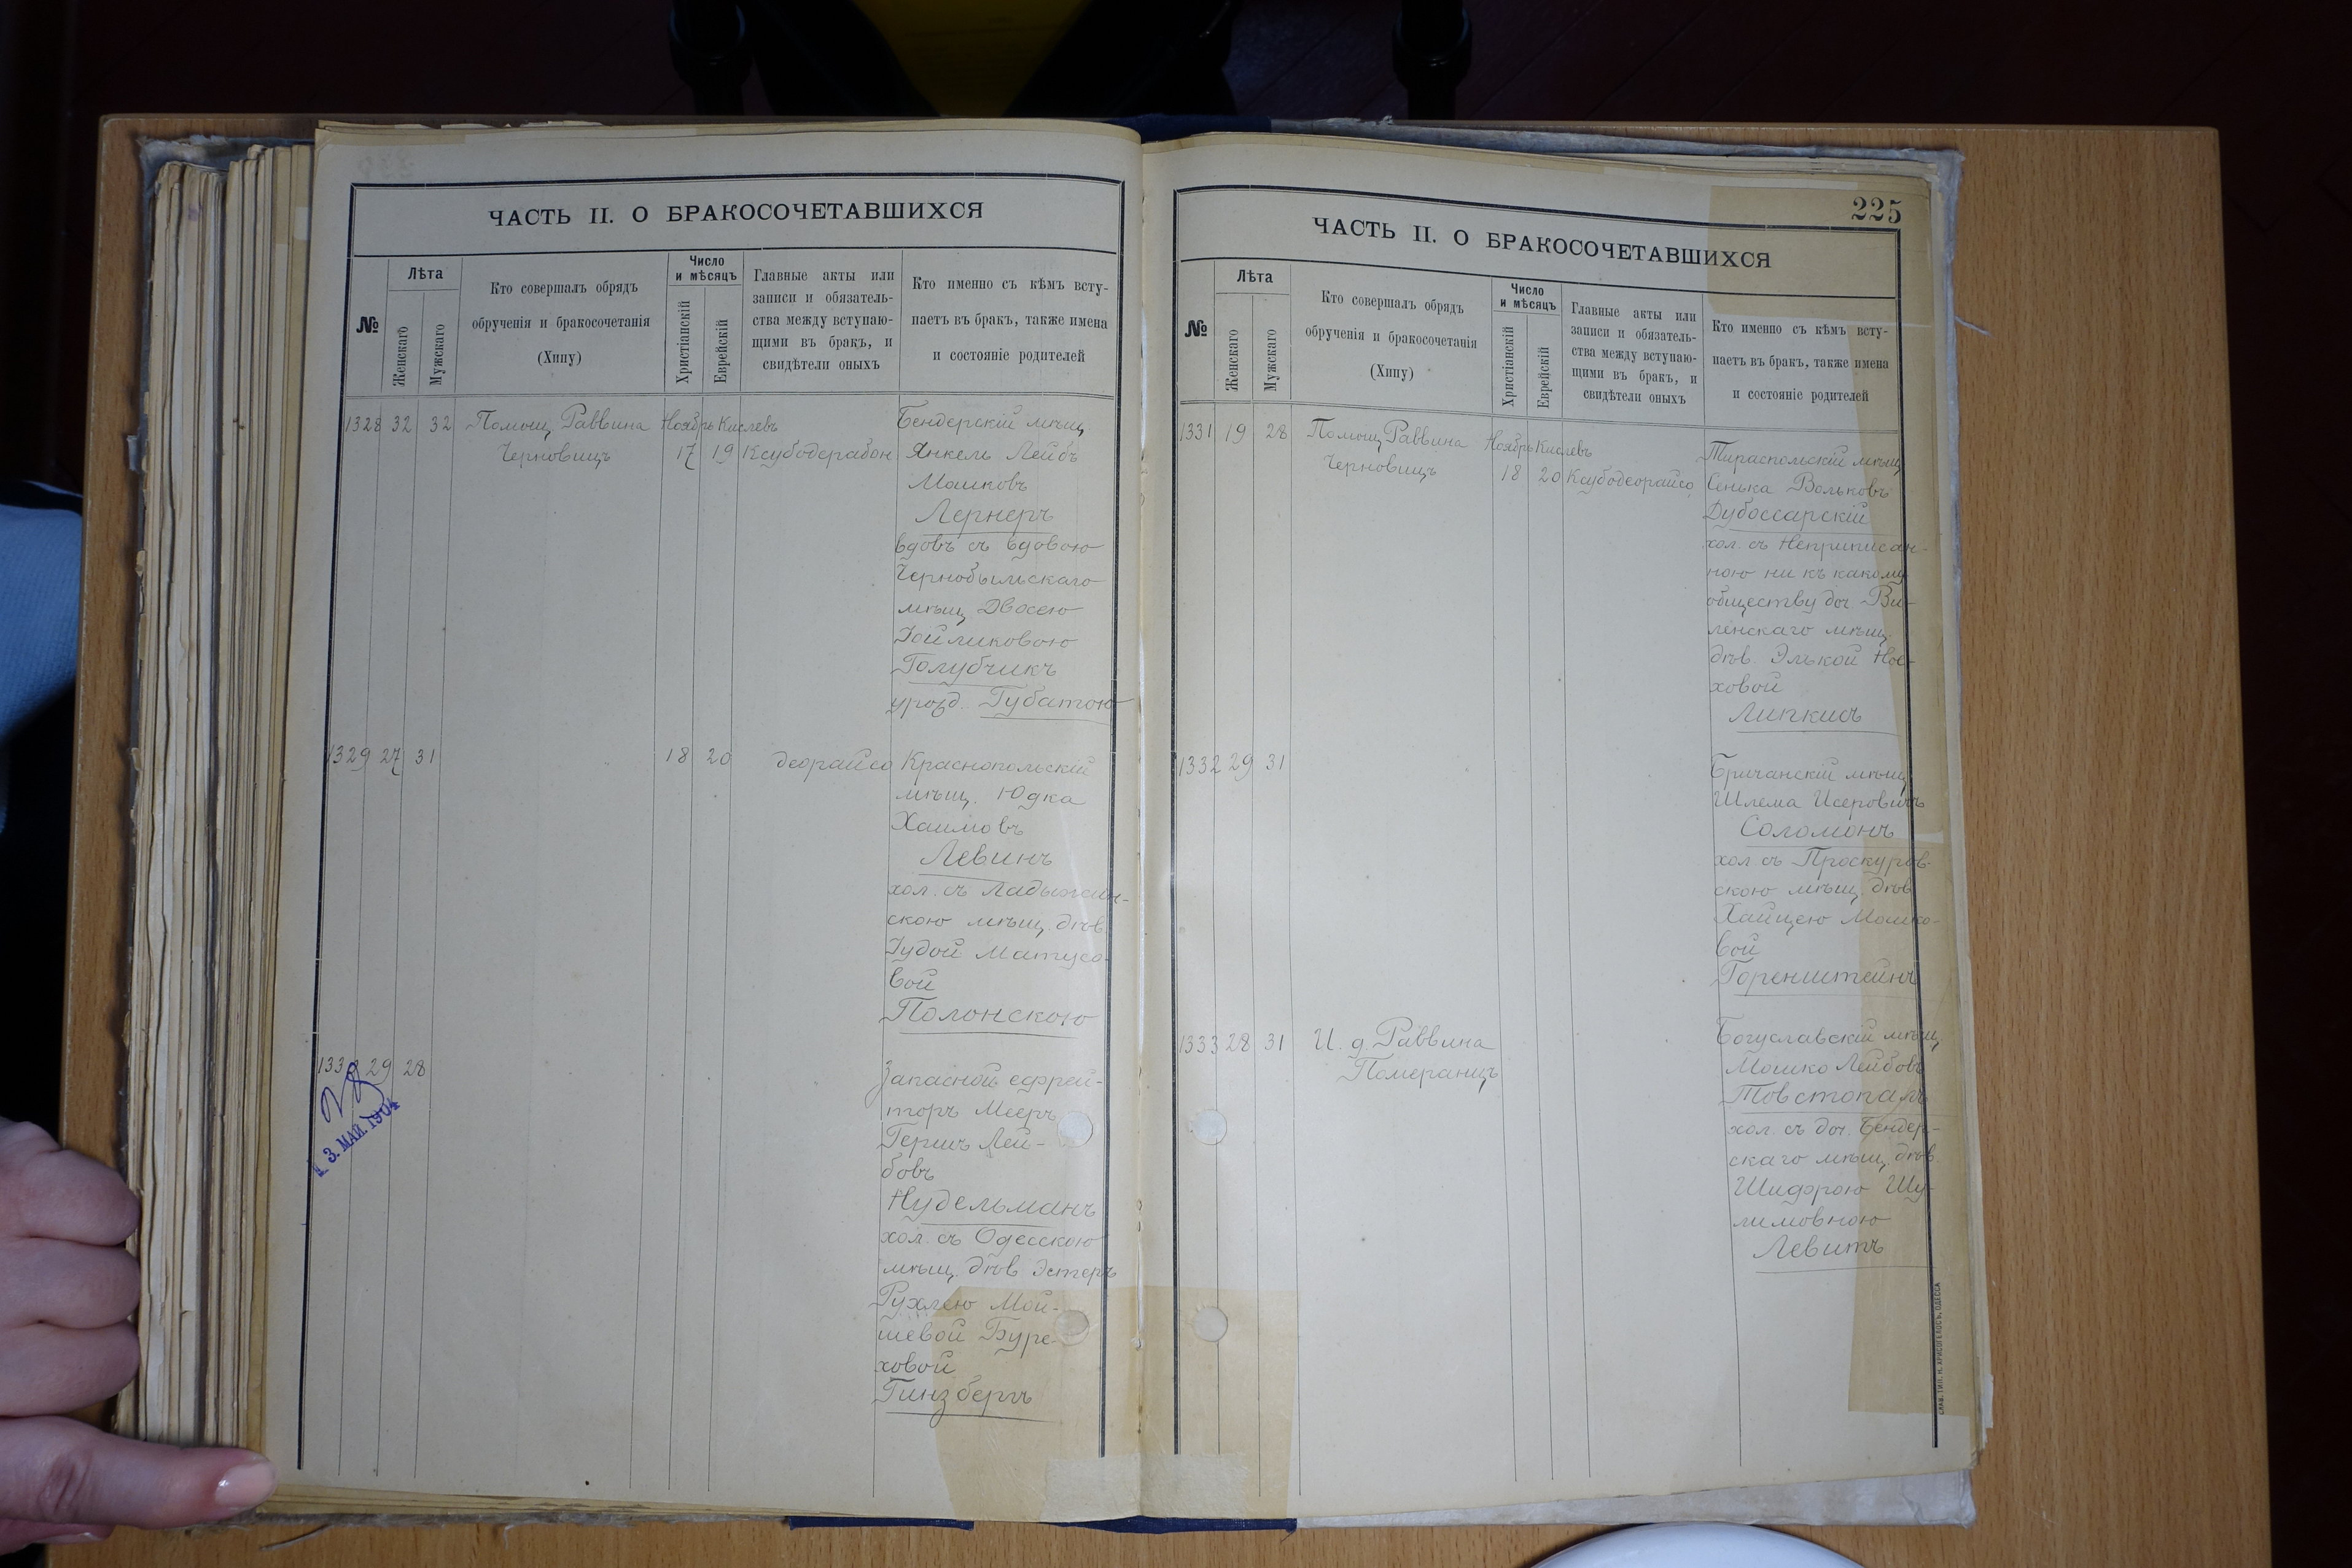 ЧАСТЬ II. О БРАКОСОЧЕТАВШИХСЯ
№
Лѣта
Женскаго
Мужскаго
Кто совершалъ обрядъ
обрученія и бракосочетанія
(Хипу)
Число
и мѣсяцъ
Христіанскій
Еврейскій
Главные акты или
записи и обязатель-
ства между вступаю-
щими въ бракъ, и
свидѣтели оныхъ
Кто именно съ кѣмъ всту-
паетъ въ бракъ, также имена
и состояніе родителей
1328 32 32 Помощ. Раввина Ноябрь Кислевъ Бендерскій мѣщ
Черновицъ 17 19 Ксубодерабон Янкель Лейбъ
Мошковъ
Лернеръ
вдовъ съ вдовою
Чернобыльскаго
мѣщ Двосею
Іойликовою
Голубчикъ
урожд. Губатою
1329 27 31 18 20 деорайсо Краснопольскій
мѣщ. Юдка
Хаимовъ
Левинъ
хол. съ Ладыжин-
скою мѣщ. дѣв.
Іудой Матусо-
вой
Полонскою
1330 29 28
Запасной ефрей-
торъ Мееръ
Гершъ Лей-
бовъ
Нудельманъ
хол. съ Одесскою
мѣщ. дѣв Эстеръ
Рухлею Мой-
шевой Буре-
ховой
Гинзбергъ
3. МАЙ. 1904
225
ЧАСТЬ II. О БРАКОСОЧЕТАВШИХСЯ
№
Лѣта
Женскаго
Мужскаго
Кто совершалъ обрядъ
обрученія и бракосочетанія
(Хипу)
Число
и мѣсяцъ
Христіанскій
Еврейскій
Главные акты или
записи и обязатель-
ства между вступаю-
щими въ бракъ, и
свидѣтели оныхъ
Кто именно съ кѣмъ всту-
паетъ въ бракъ, также имена
и состояніе родителей
1331 19 28 Помощ Раввина Ноябрь Кислевъ Тираспольскій мѣщ
Черновицъ 18 20 Ксубодеорайсо Сенька Вольковъ
Дубоссарскій
хол. съ Неприписан-
ною ни къ какому
обществу доч. Ви-
ленскаго мѣщ.
дѣв. Элькой Ноя-
ховой
Липкисъ
1332 29 31
Бричанскій мѣщ
Шлема Исеровичъ
Соломонъ
хол. съ Проскуров-
скою мѣщ. дѣв
Хайцею Мошко-
вой
Горенштейнъ
1333 28 31 И. д. Раввина Богуславскій мѣщ
Померанцъ Мошко Лейбовъ
Товстопалъ
хол. съ доч. Бендер-
скаго мѣщ. дѣв
Шифрою Шу-
лимовною
Левитъ
СЛАВ. ТИП. Н. ХРИСОГЕЛОСЪ, ОДЕССА